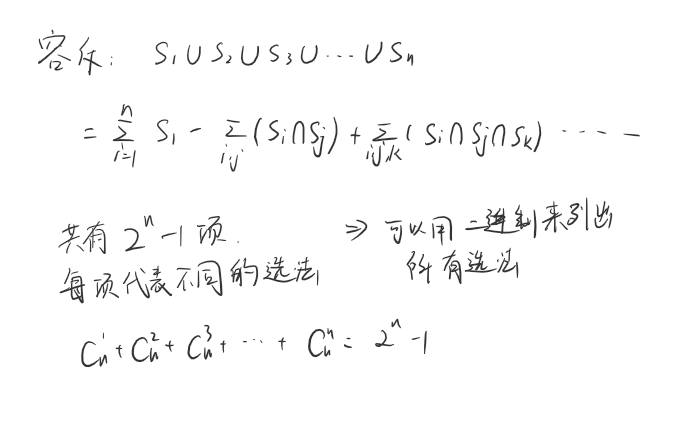 容斥: S₁∪S₂∪S₃∪…∪Sₙ
= ∑ⁿᵢ₌₁ S₁ - ∑ᵢ,ⱼ (Sᵢ∩Sⱼ) + ∑ᵢ,ⱼ,ₖ (Sᵢ∩Sⱼ∩Sₖ) …… -
共有 2ⁿ-1 项.
每项代表不同的选法
⇒ 可以用二进制来列出
所有选法
Cₙ¹+Cₙ²+Cₙ³+…+Cₙⁿ = 2ⁿ-1